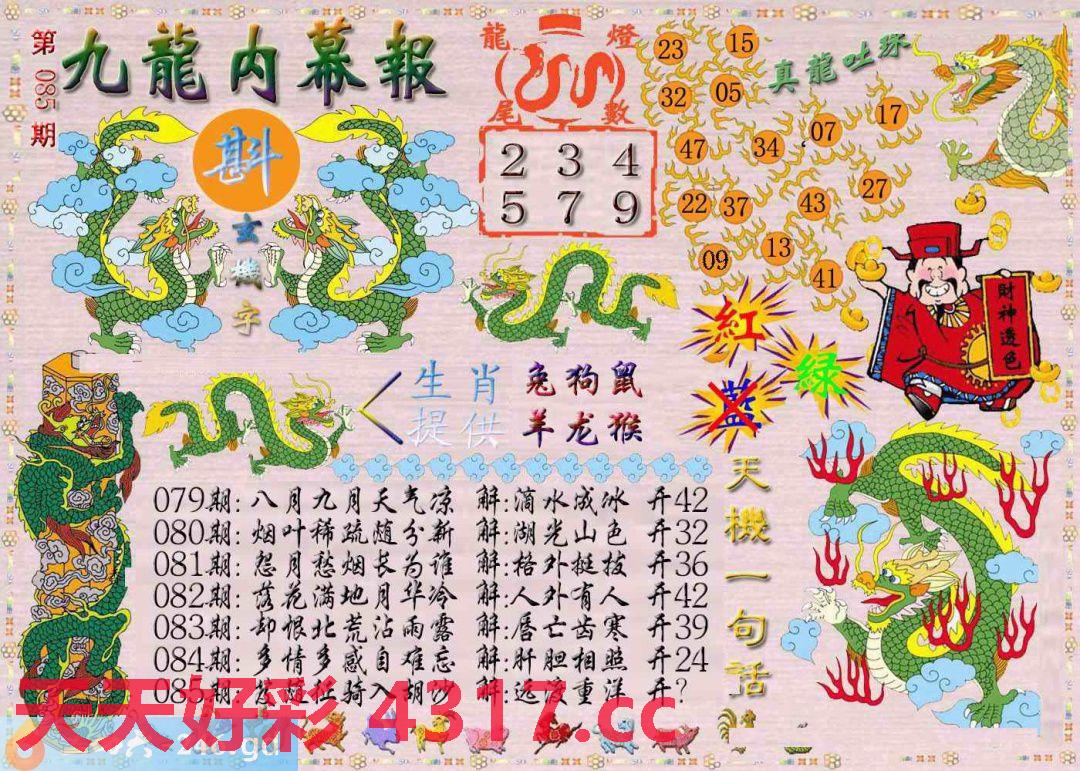 第085期
九龍内幕報
斟
玄機字
龍燈尾數
2 3 4
5 7 9
真龍吐珠
23 15
32 05
47 34 07 17
22 37 43 27
09 13 41
紅
綠
藍
財神透色
生肖提供
兔狗鼠
羊龙猴
天機一句話
079期:八月九月天气凉 解:滴水成冰 开42
080期:烟叶稀疏随分新 解:湖光山色 开32
081期:怨月愁烟长为谁 解:格外挺拔 开36
082期:落花满地月华冷 解:人外有人 开42
083期:却恨北荒沾雨露 解:唇亡齿寒 开39
084期:多情多感自难忘 解:肝胆相照 开24
085期: 骑入胡沙 解:远渡重洋 开?
天天好彩 4317.cc